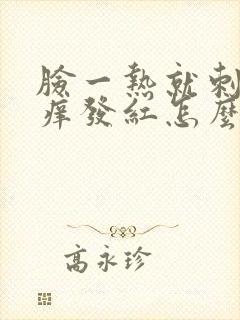 臉一熱就刺
癢發紅怎麼
高永珍